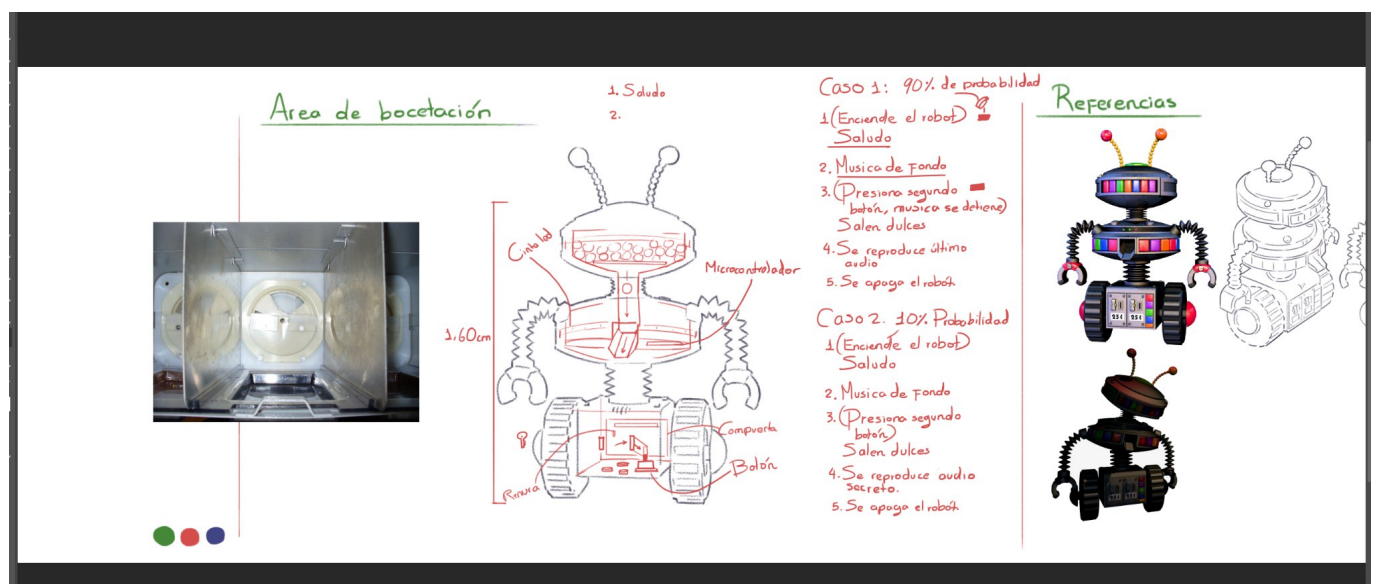 Area de bocetación
1. Saludo
2.
Cinta led
Microcontrolador
1,60cm
Compuerta
Botón
Ranura
Caso 1: 90% de probabilidad
1 (Enciende el robot)
Saludo
2. Musica de Fondo
3. (Presiona segundo
botón, musica se detiene)
Salen dulces
4. Se reproduce último
audio
5. Se apaga el robot
Caso 2. 10% Probabilidad
1 (Enciende el robot)
Saludo
2. Musica de Fondo
3. (Presiona segundo
botón)
Salen dulces
4. Se reproduce audio
secreto.
5. Se apaga el robot
Referencias